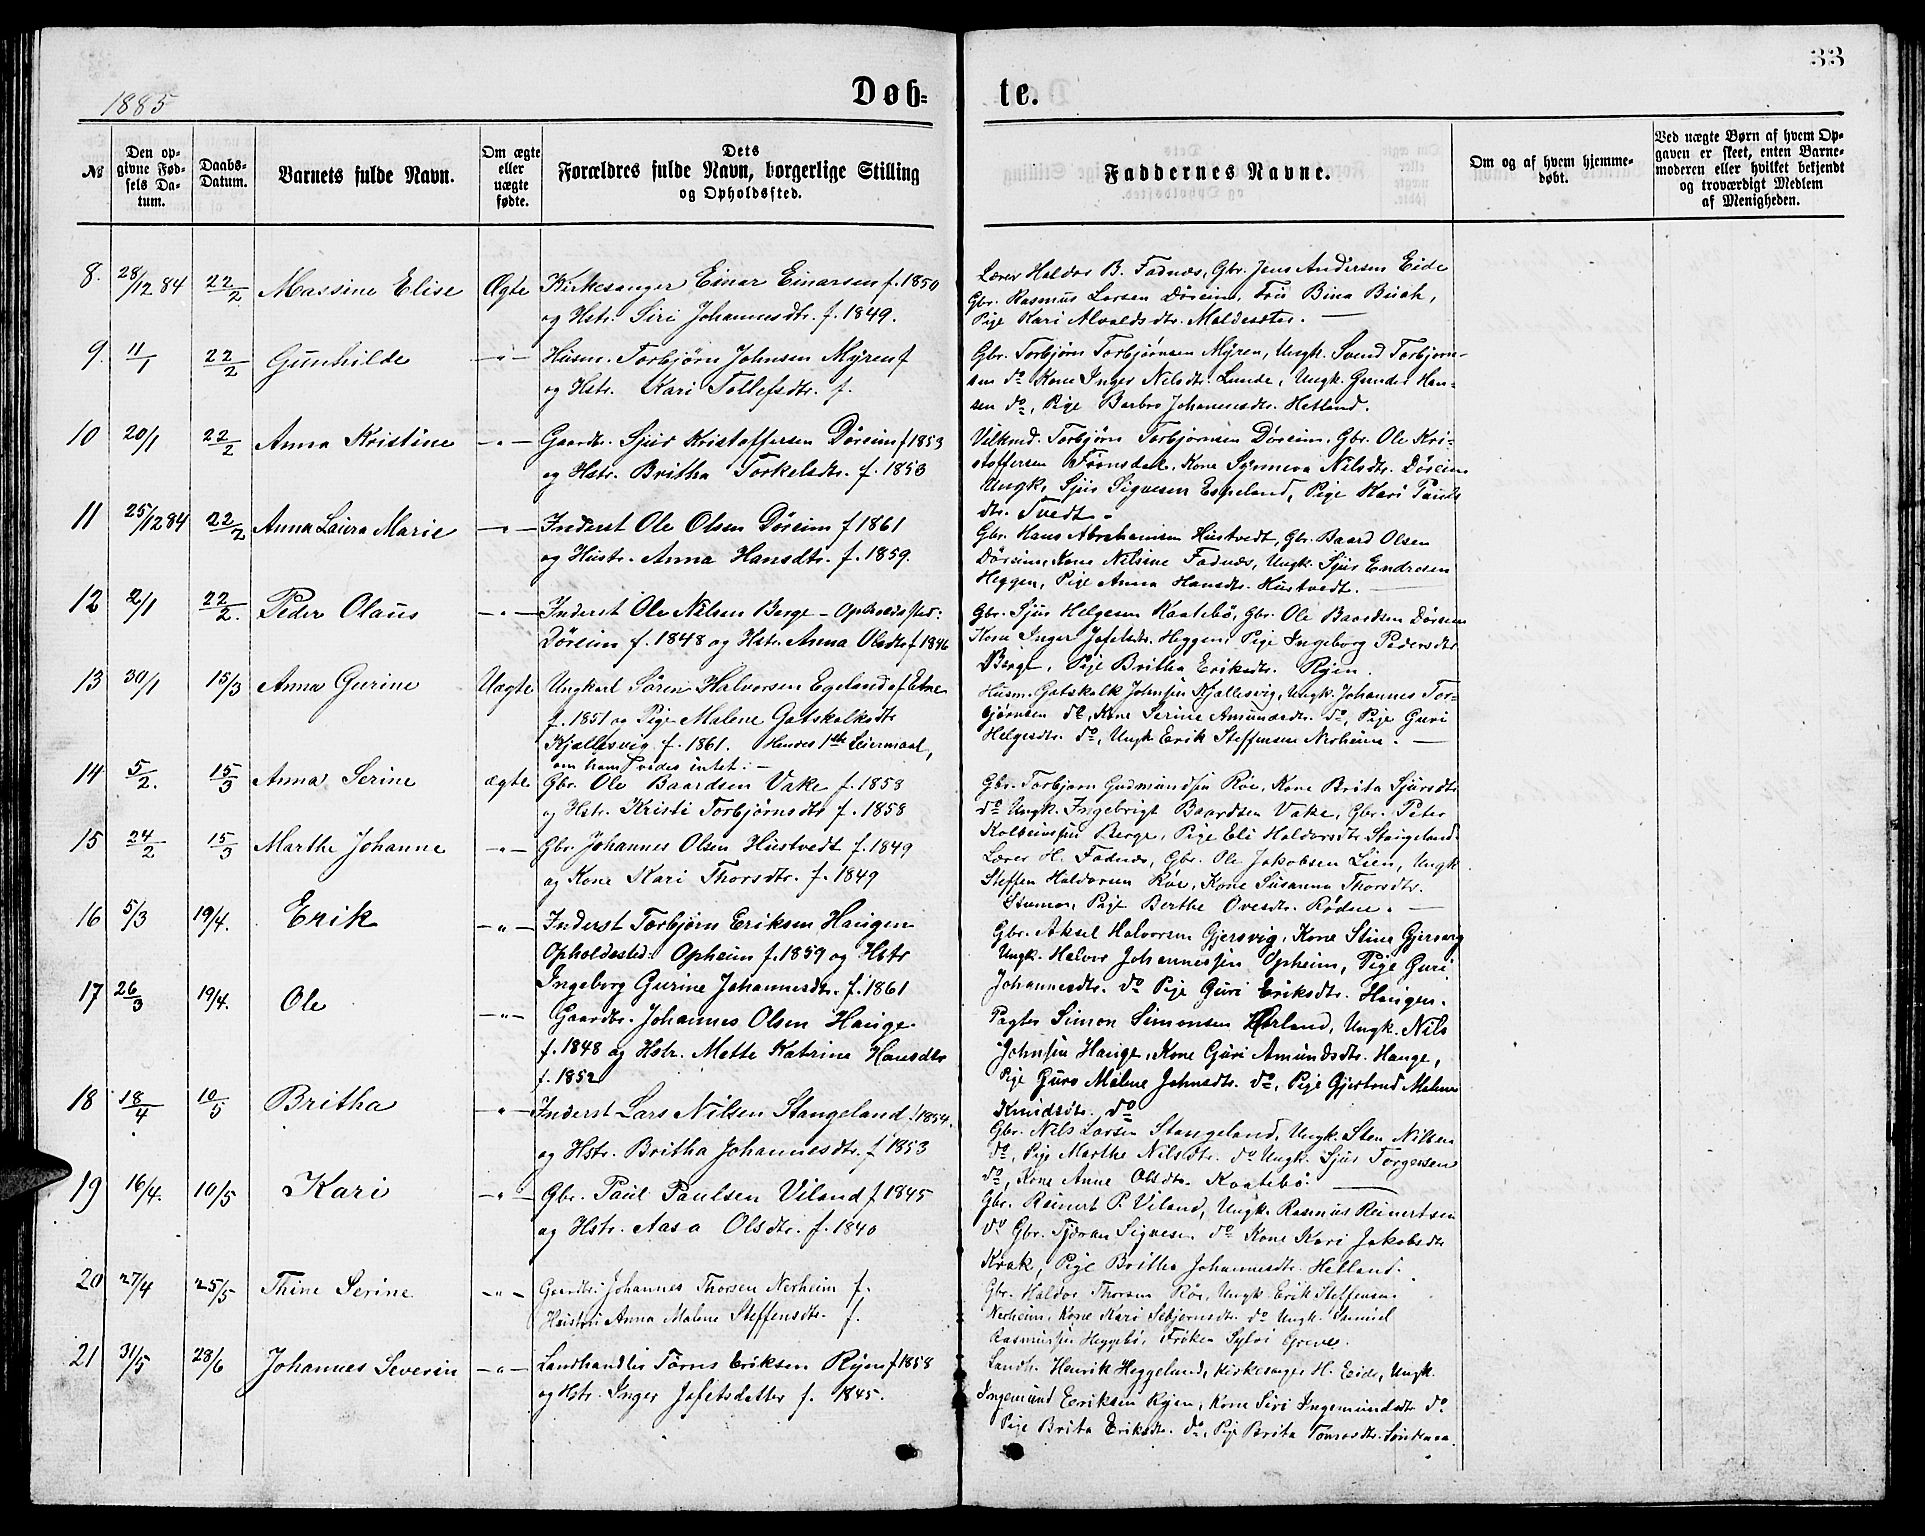 33
1885
Døb-
te.
№
Den op-
givne Fød-
sels Da-
tum.
Daabs-
Datum.
Barnets fulde Navn.
Om ægte
eller
uægte
fødte.
Dets
Forældres fulde Navn, borgerlige Stilling
og Opholdssted.
Faddernes Navne.
Om og af hvem hjemme-
døbt.
Ved uægte Børn af hvem Op-
gaven er skeet, enten Barne-
moderen eller hvilket bekjendt
og troværdigt Medlem
af Menigheden.
8. 28/12 84 22/2 Massine Elise Ægte Kirkesanger Einar Einarsen f. 1850
og Hstr. Siri Johannesdtr. f. 1849.
Lærer Haldor B. Fadnæs, Gbr. Jens Andersen Eide
Gbr. Rasmus Larsen Døreim, Fru Bina Buch,
Pige Kari Alvaldsdtr. Maldesæter. —
9. 11/1 22/2 Gunhilde —"— Husm. Torbjørn Johnsen Myren f
og Hstr. Kari Tollefsdtr. f.
Gbr. Torbjørn Torbjørnsen Myren, Ungk. Svend Torbjørn-
sen do Kone Inger Nilsdtr. Lunde, Ungk. Gunder Han-
sen do, Pige Barbro Johannesdtr. Hetland.
10 20/1 22/2 Anna Kristine —"— Gaardbr. Sjur Kristoffersen Døreim f 1853
og Hstr. Britha Torkelsdtr. f. 1853
Velkmd. Torbjørn Torbjørnsen Døreim, Gbr. Ole Kri-
stoffersen Førnsdal, Kone Synneva Nilsdtr. Døreim
Ungk. Sjur Sigvesen Espeland, Pige Kari Pauls
dtr. Tvedt.
11 25/12 84 22/2 Anna Laura Marie —"— Inderst Ole Olsen Døreim f 1861
og Hustr. Anna Hansdtr. f. 1859.
Gbr. Hans Abrahamsen Hustvedt, Gbr. Baard Olsen
Døreim, Kone Nilsine Fadnæs, Ungk. Sjur Endresen
Heggen, Pige Anna Hansdtr. Hustvedt. —
12 2/1 22/2. Peder Olaus —"— Inderst Ole Nilsen Berge - Opholdssted:
Døreim f. 1848 og Hstr. Anna Olsdtr f 1846
Gbr. Sjur Helgesen Kaatebø, Gbr. Ole Baardsen Døreim
Kone Inger Jofetsdtr. Heggen, Pige Ingeborg Pedersdtr
Berge, Pige Britha Eriksdtr. Ryen.
13 30/1 15/3 Anna Gurine Uægte Ungkarl Søren Halvorsen Egeland af Etne
f. 1851 og Pige Malene Gotskalksdtr
Kjallesvig f. 1861. Hendes 1ste Leiermaal,
om ham vides intet: —
Husm. Gotskalk Johnsen Kjallesvig, Ungk. Johannes Tor-
bjørnsen do, Kone Serine Amundsdtr. do, Pige Guri
Helgesdtr. do, Ungk Erik Steffensen Nerheim. —
14 5/2. 15/3 Anna Serine ægte Gbr. Ole Baardsen Vake f. 1853
og Hstr. Kristi Torbjørnsdtr f. 1858
Gbr. Torbjørn Gudmundsen Røe, Kone Brita Sjursdtr
do Ungk. Ingebrigt Baardsen Vake, Gbr. Peter
Kolbeinsen Berge, Pige Eli Haldorsdtr Stangeland.
15 24/2 15/3 Marthe Johanne —"— Gbr. Johannes Olsen Hustvedt f. 1849
og Kone Kari Thorsdtr. f. 1849
Lærer H. Fadnæs, Gbr. Ole Jakobsen Lien, Ungk
Steffen Haldorsen Røe, Kone Susanna Thorsdtr.
Stumo, Pige Berthe Ovesdtr. Rødne. —
16 5/3 19/4. Erik —"— Inderst Torbjørn Eriksen Haugen
Opholdssted: Opheim f. 1859 og Hstr
Ingeborg Gurine Johannesdtr. f. 1861
Gbr. Aksel Halvorsen Gjersvig, Kone Stine Gjersvig
Ungk. Halvor Johannessen Opheim, Pige Guri
Johannesdtr. do Pige Guri Eriksdtr. Haugen.
17 26/3 19/4. Ole —"— Gaardbr. Johannes Olsen Hauge
f. 1848 og Hstr. Mette Katrina Hansdtr
f. 1852
Pagter Simon Simonsen Hørland, Ungk. Nils
Johnsen Hauge, Kone Guri Amundsdtr. Hauge,
Pige Guro Malene Johnsdtr. do, Pige Gjertrud Malene
Knudsdtr. do
18 18/4 10/5 Britha —"— Inderst Lars Nilsen Stangeland f 1854.
og Hstr. Britha Johannesdtr. f 1853
Gbr. Nils Larsen Stangeland, Ungk. Sten Nilsen
do, Pige Marthe Nilsdtr. do Ungk. Sjur Torgersen
do, Kone Anne Olsdtr. Kvatebø. —
19 16/4. 10/5 Kari —"— Gbr. Paul Paulsen Viland f 1845
og Hstr. Aasa Olsdtr. f. 1840
Gbr. Reinert P. Viland, Ungk. Rasmus Reinertsen
do Gbr. Tjøran Sigvesen do Kone Kari Jakobsdtr
Krak, Pige Britha Johannesdtr. Hetland.
20 27/4 25/5 Thine Serine —"— Gaardbr. Johannes Thorsen Nerheim f.
Hustru Anna Malene Steffensdtr. f.
Gbr. Haldor Thorsen Røe, Ungk. Erik Steffensen
Nerheim, Kone Kari Sebjørnsdtr. do Ungk. Samuel
Rasmussen Heggebø, Frøken Sylvi Greve.
21 31/5 28/6 Johannes Severin —"— Landhandler Tørris Eriksen Ryen f 1858
og Hstr. Inger Jofetsdatter f. 1845.
Landh. Henrik Heggeland, Kirkesanger H. Eide, Ungk.
Ingemund Eriksen Ryen, Kone Siri Ingemundsdtr do
Pige Brita Eriksdtr. do, Pige Brita Tomasdtr.